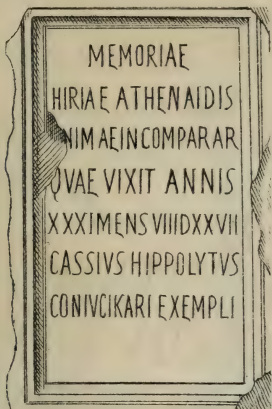 MEMORIAE
HIRIAE ATHENAIDIS
NIMAEINCOMPARAR
QVAE VIXIT ANNIS
XXXIMENSVIIIDXXVII
CASSIVS HIPPOLYTVS
CONIVCIKARIEXEMPLI